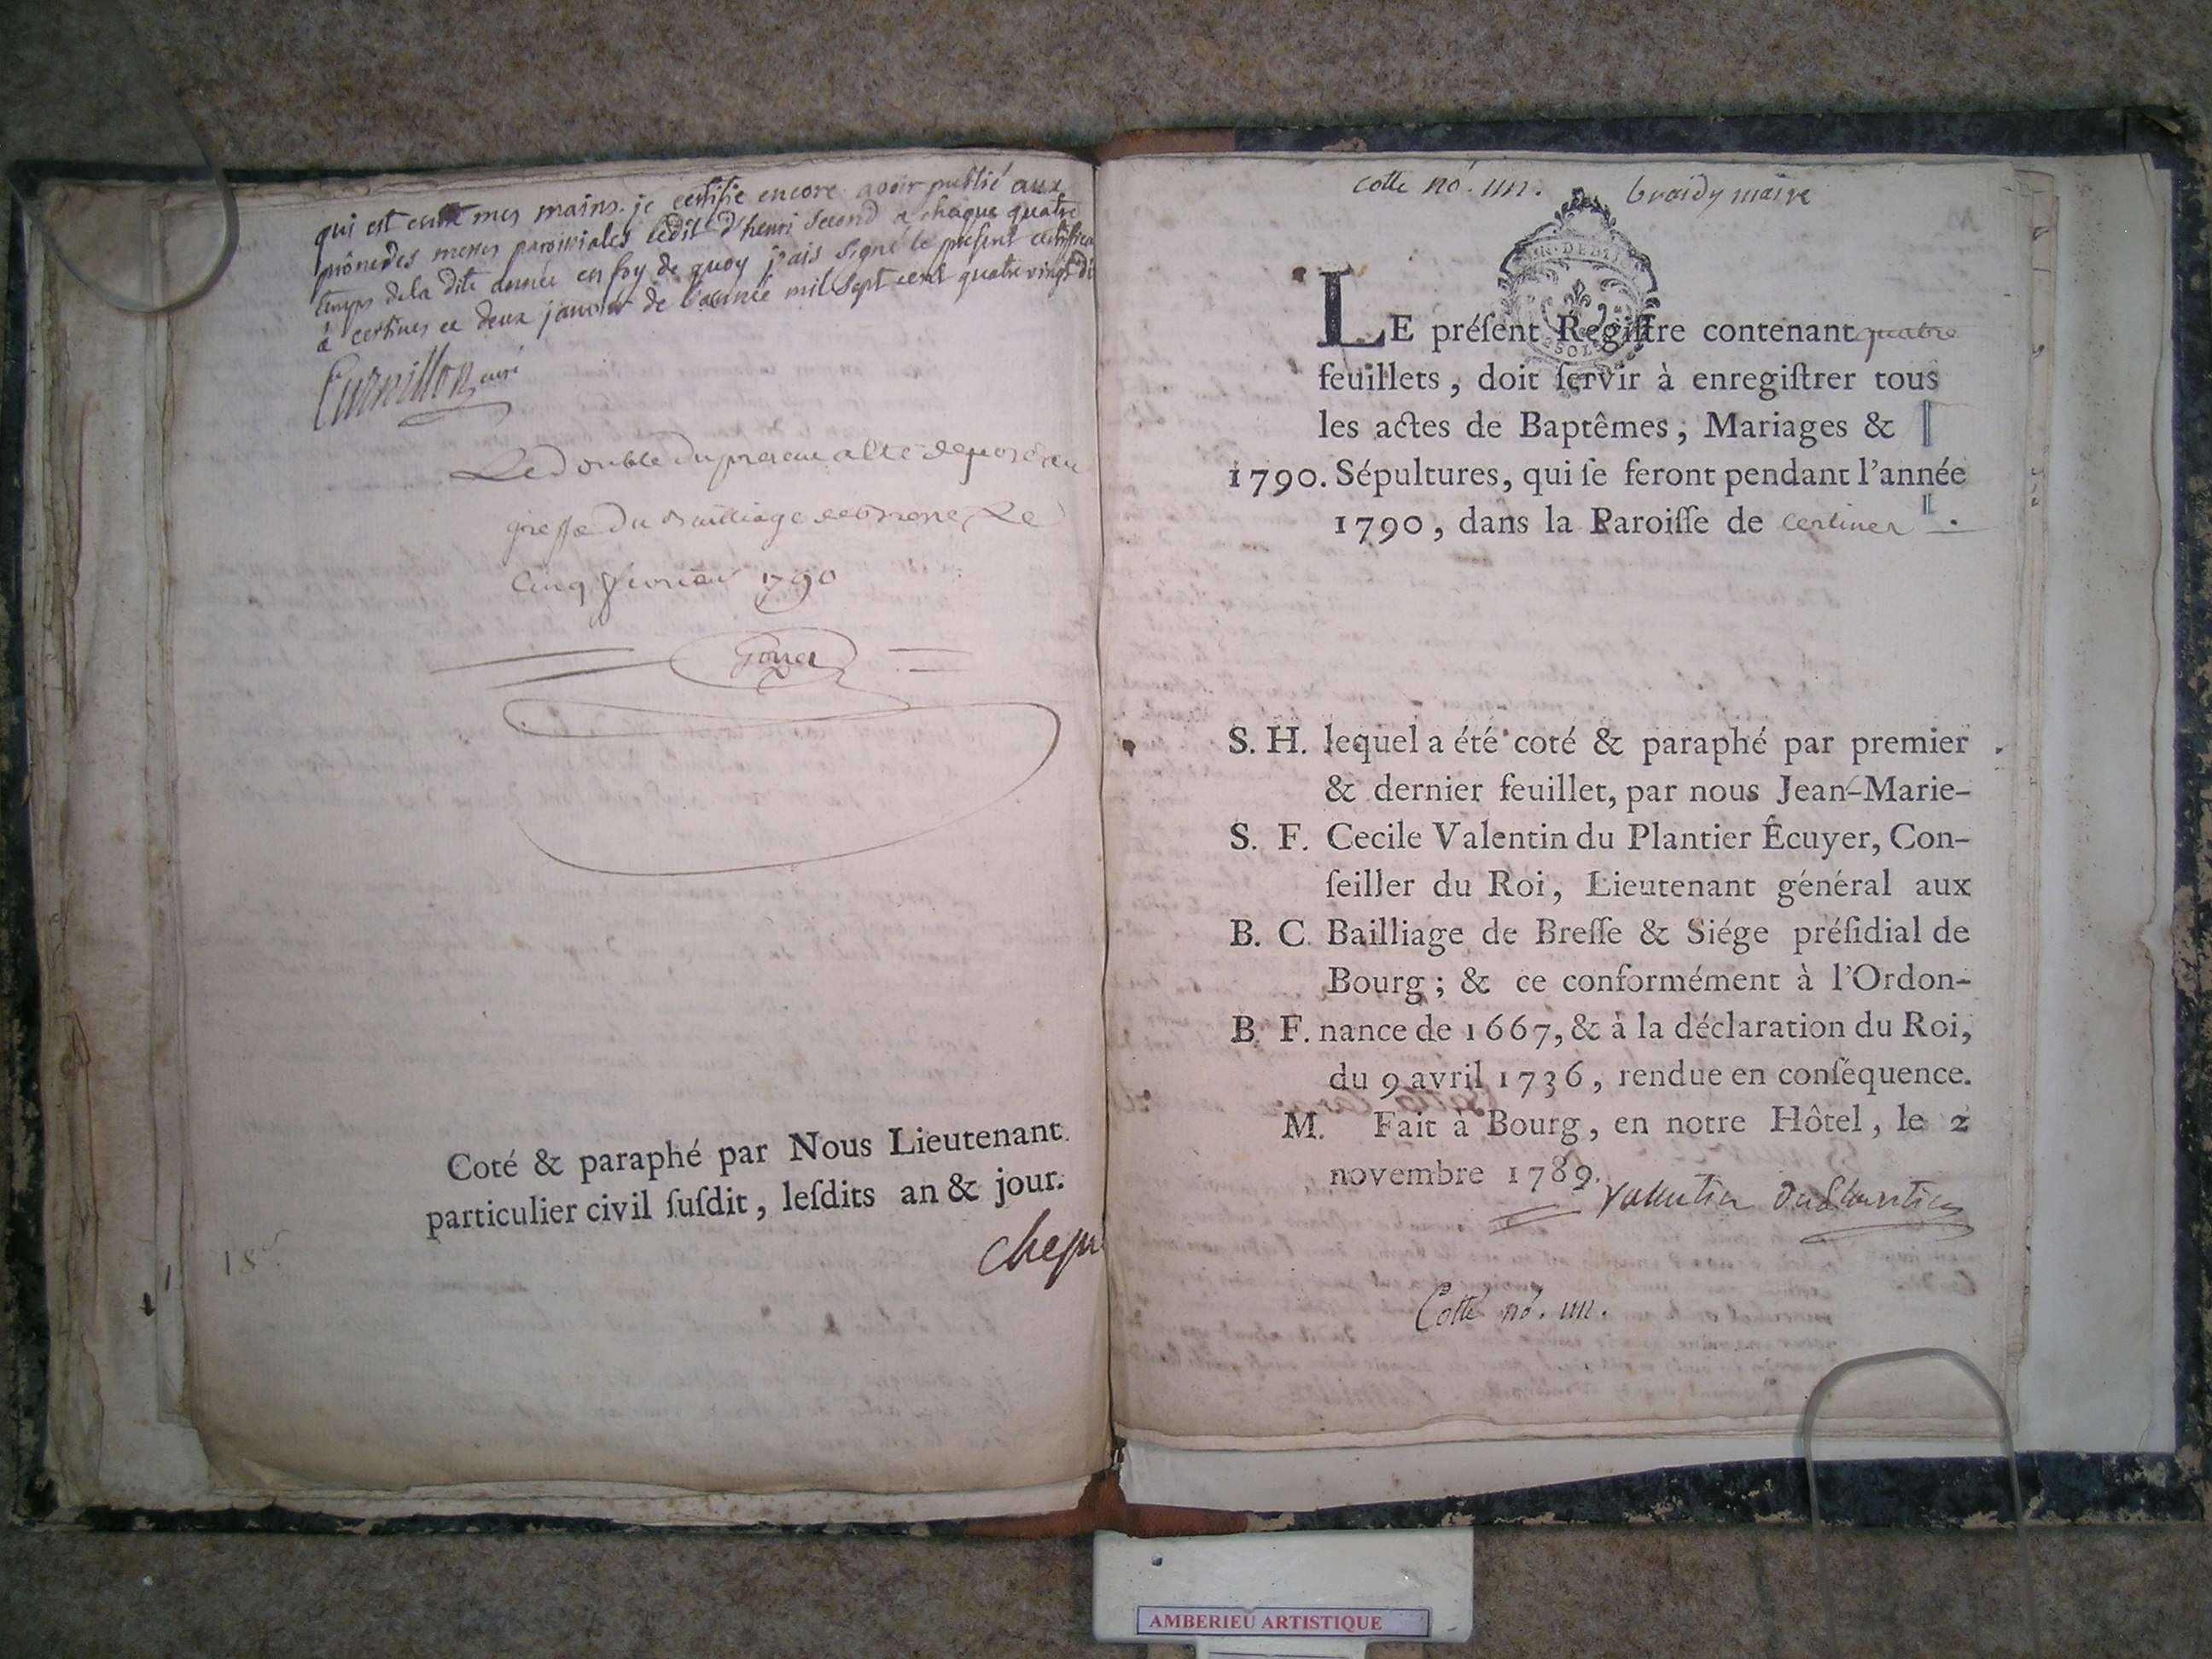 qui est entre mes mains. je certifie encore avoir publié aux
prônes des messes paroissiales ledit d'henri second a chaque quatre
temps de la dite année en foy de quoy j'ais signé le présent certifica
à certines ce deux janvier de l'année mil sept cent quatre vingt di
curé
Le double du present a été deposé au
greffe du Bailliage de Bresse, Le
cinq février 1790
Coté & paraphé par Nous Lieutenant
particulier civil ſuſdit, leſdits an & jour.
cotte no. un. braidy maire
LE préſent Regiſtre contenant quatre
feuillets, doit ſervir à enregiſtrer tous
les actes de Baptêmes, Mariages &
1790. Sépultures, qui ſe feront pendant l'année
1790, dans la Paroiſſe de certines.
S. H. lequel a été coté & paraphé par premier
& dernier feuillet, par nous Jean-Marie-
S. F. Cecile Valentin du Plantier Écuyer, Con-
ſeiller du Roi, Lieutenant général aux
B. C. Bailliage de Breſſe & Siége préſidial de
Bourg; & ce conformément à l'Ordon-
B. F. nance de 1667, & à la déclaration du Roi,
du 9 avril 1736, rendue en conſéquence.
M. Fait à Bourg, en notre Hôtel, le 2
novembre 1789.
Valentin Duplantier
Cotté no. un.
AMBERIEU ARTISTIQUE